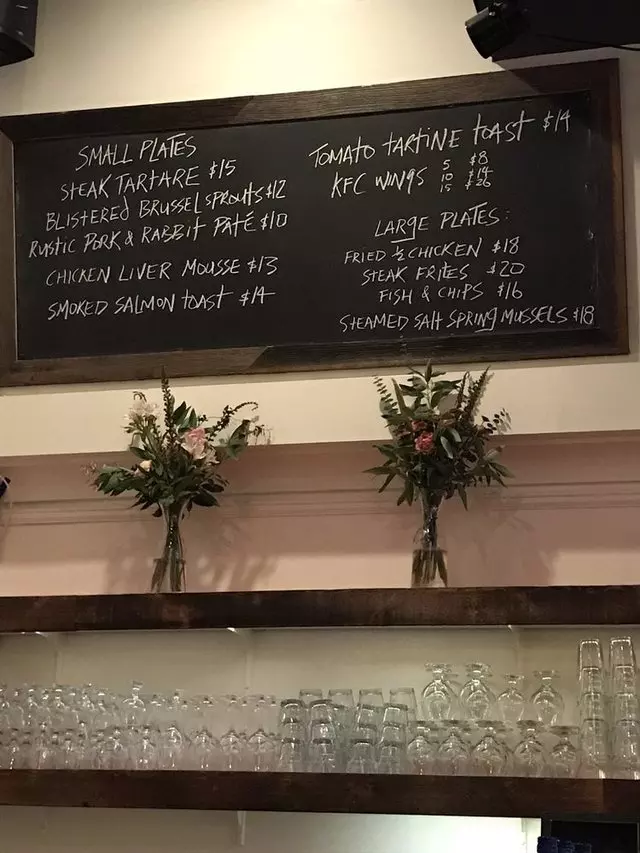 SMALL PLATES
STEAK TARTARE $15
BLISTERED BRUSSEL SPROUTS $12
RUSTIC PORK & RABBIT PATÉ $10
CHICKEN LIVER MOUSSE $13
SMOKED SALMON TOAST $14
TOMATO TARTINE TOAST $14
KFC WINGS 5 $8
10 $14
15 $26
LARGE PLATES:
FRIED ½ CHICKEN $18
STEAK FRITES $20
FISH & CHIPS $16
STEAMED SALT SPRING MUSSELS $18